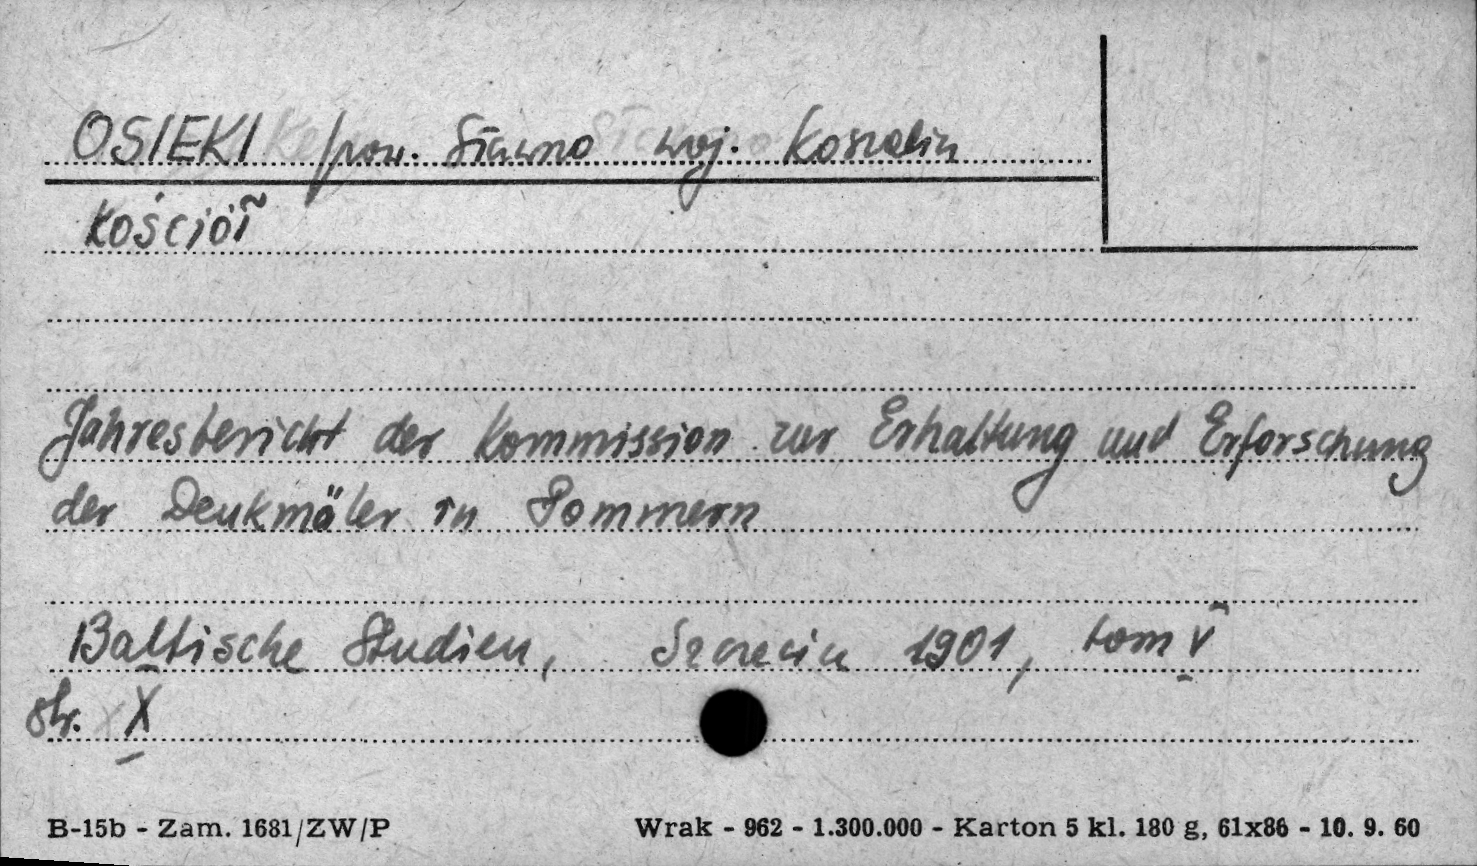 OSIEKI /pow. Sławno woj. Koszalin
Kościół
Jahresbericht der Kommission zur Erhaltung und Erforschung
der Denkmäler in Pommern
Baltische Studien, Szczecin 1901, tom V
str. X
B-15b - Zam. 1681/ZW/P Wrak - 962 - 1.300.000 - Karton 5 kl. 180 g, 61x86 - 10. 9. 60